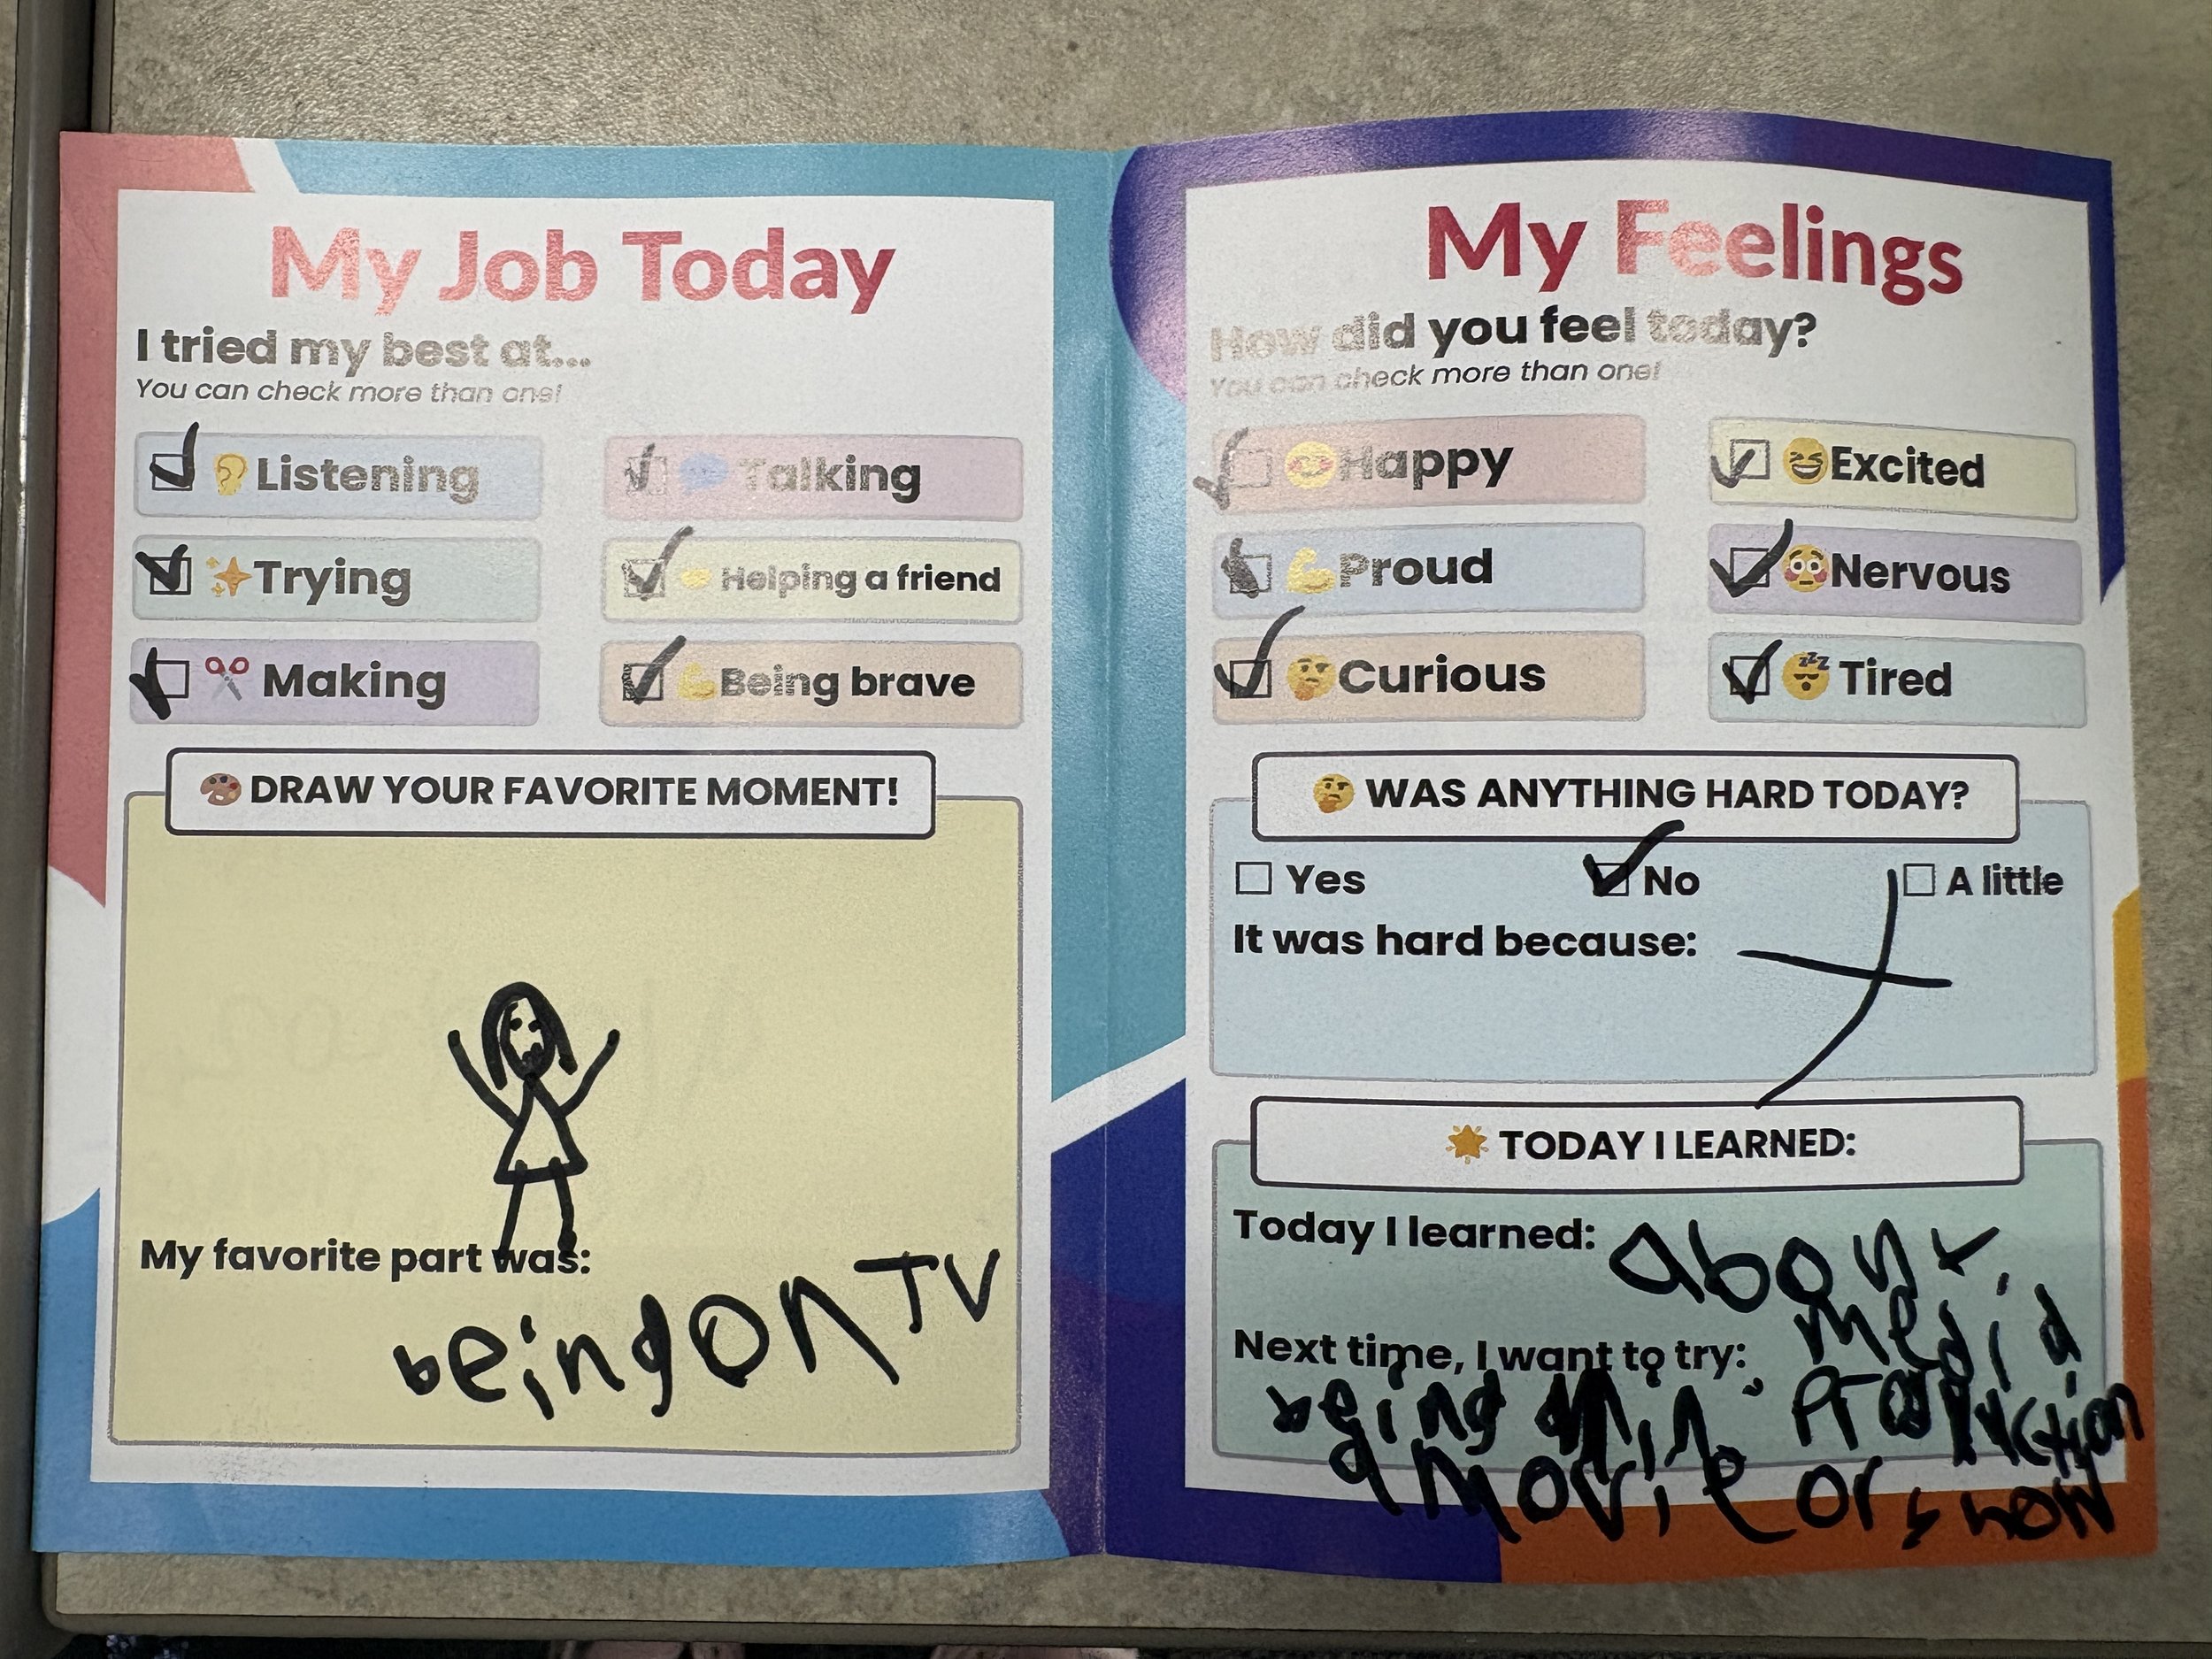 My Job Today
I tried my best at...
You can check more than one!
Listening
Talking
Trying
Helping a friend
Making
Being brave
DRAW YOUR FAVORITE MOMENT!
My favorite part was:
being on TV
My Feelings
How did you feel today?
You can check more than one!
Happy
Excited
Proud
Nervous
Curious
Tired
WAS ANYTHING HARD TODAY?
Yes No A little
It was hard because:
TODAY I LEARNED:
Today I learned: about
media
production
Next time, I want to try:
being in
a movie or show